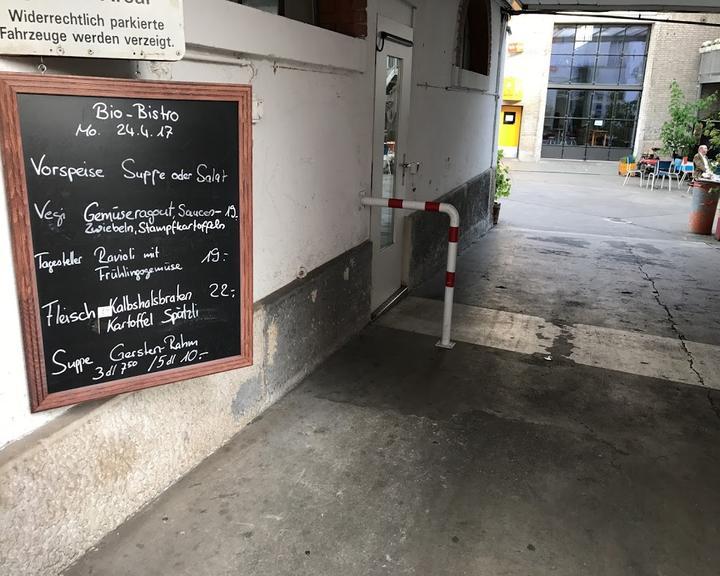 Widerrechtlich parkierte
Fahrzeuge werden verzeigt.
Bio-Bistro
Mo. 24.4.17
Vorspeise Suppe oder Salat
Vegi Gemüseragout, Sauce 19.-
Zwiebeln, Stampfkartoffeln
Tagesteller Ravioli mit 19.-
Frühlingsgemüse
Fleisch Kalbshalsbraten 22.-
Kartoffel Spätzli
Suppe Gersten-Rahm
3dl 7.50 / 5dl 10.-